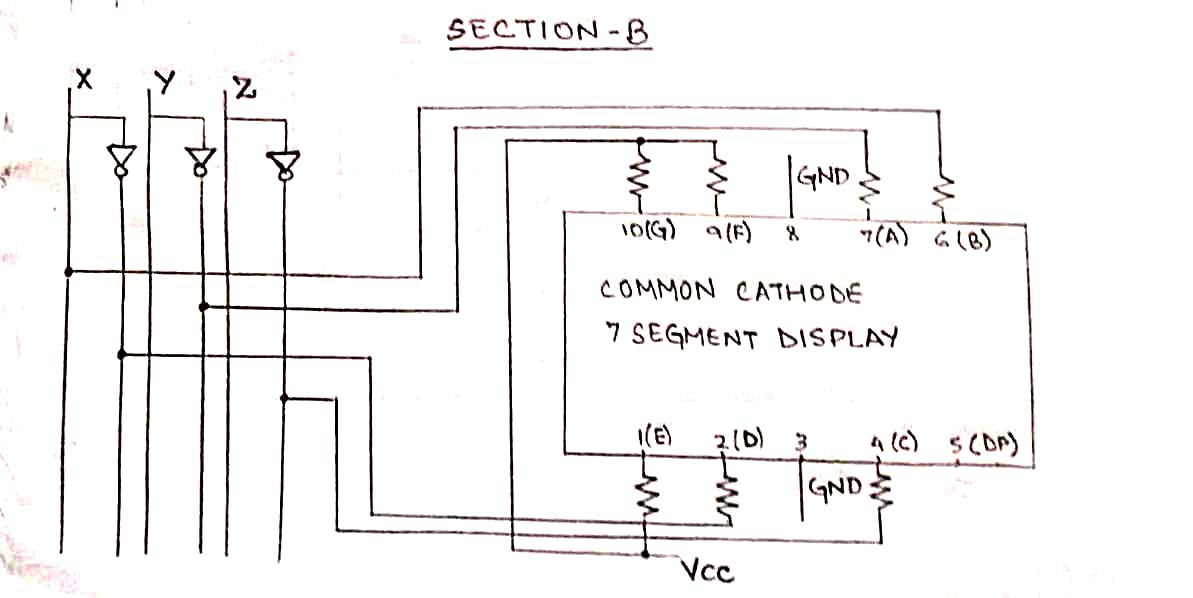 SECTION-B
X Y Z
GND
10(G) 9(F) 8 7(A) 6(B)
COMMON CATHODE
7 SEGMENT DISPLAY
1(E) 2(D) 3 4(C) 5(DP)
GND
VCC